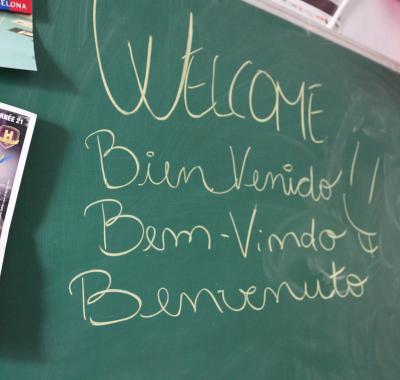 ELONA
NÉE 21
WELCOME
Bien Venido !!
Bem-Vindo
Benvenuto